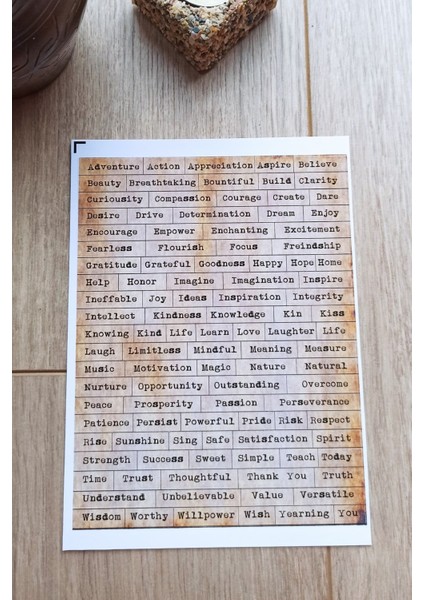 Adventure Action Appreciation Aspire Believe
Beauty Breathtaking Bountiful Build Clarity
Curiousity Compassion Courage Create Dare
Desire Drive Determination Dream Enjoy
Encourage Empower Enchanting Excitement
Fearless Flourish Focus Freindship
Gratitude Grateful Goodness Happy Hope Home
Help Honor Imagine Imagination Inspire
Ineffable Joy Ideas Inspiration Integrity
Intellect Kindness Knowledge Kin Kiss
Knowing Kind Life Learn Love Laughter Life
Laugh Limitless Mindful Meaning Measure
Music Motivation Magic Nature Natural
Nurture Opportunity Outstanding Overcome
Peace Prosperity Passion Perseverance
Patience Persist Powerful Pride Risk Respect
Rise Sunshine Sing Safe Satisfaction Spirit
Strength Success Sweet Simple Teach Today
Time Trust Thoughtful Thank You Truth
Understand Unbelievable Value Versatile
Wisdom Worthy Willpower Wish Yearning You